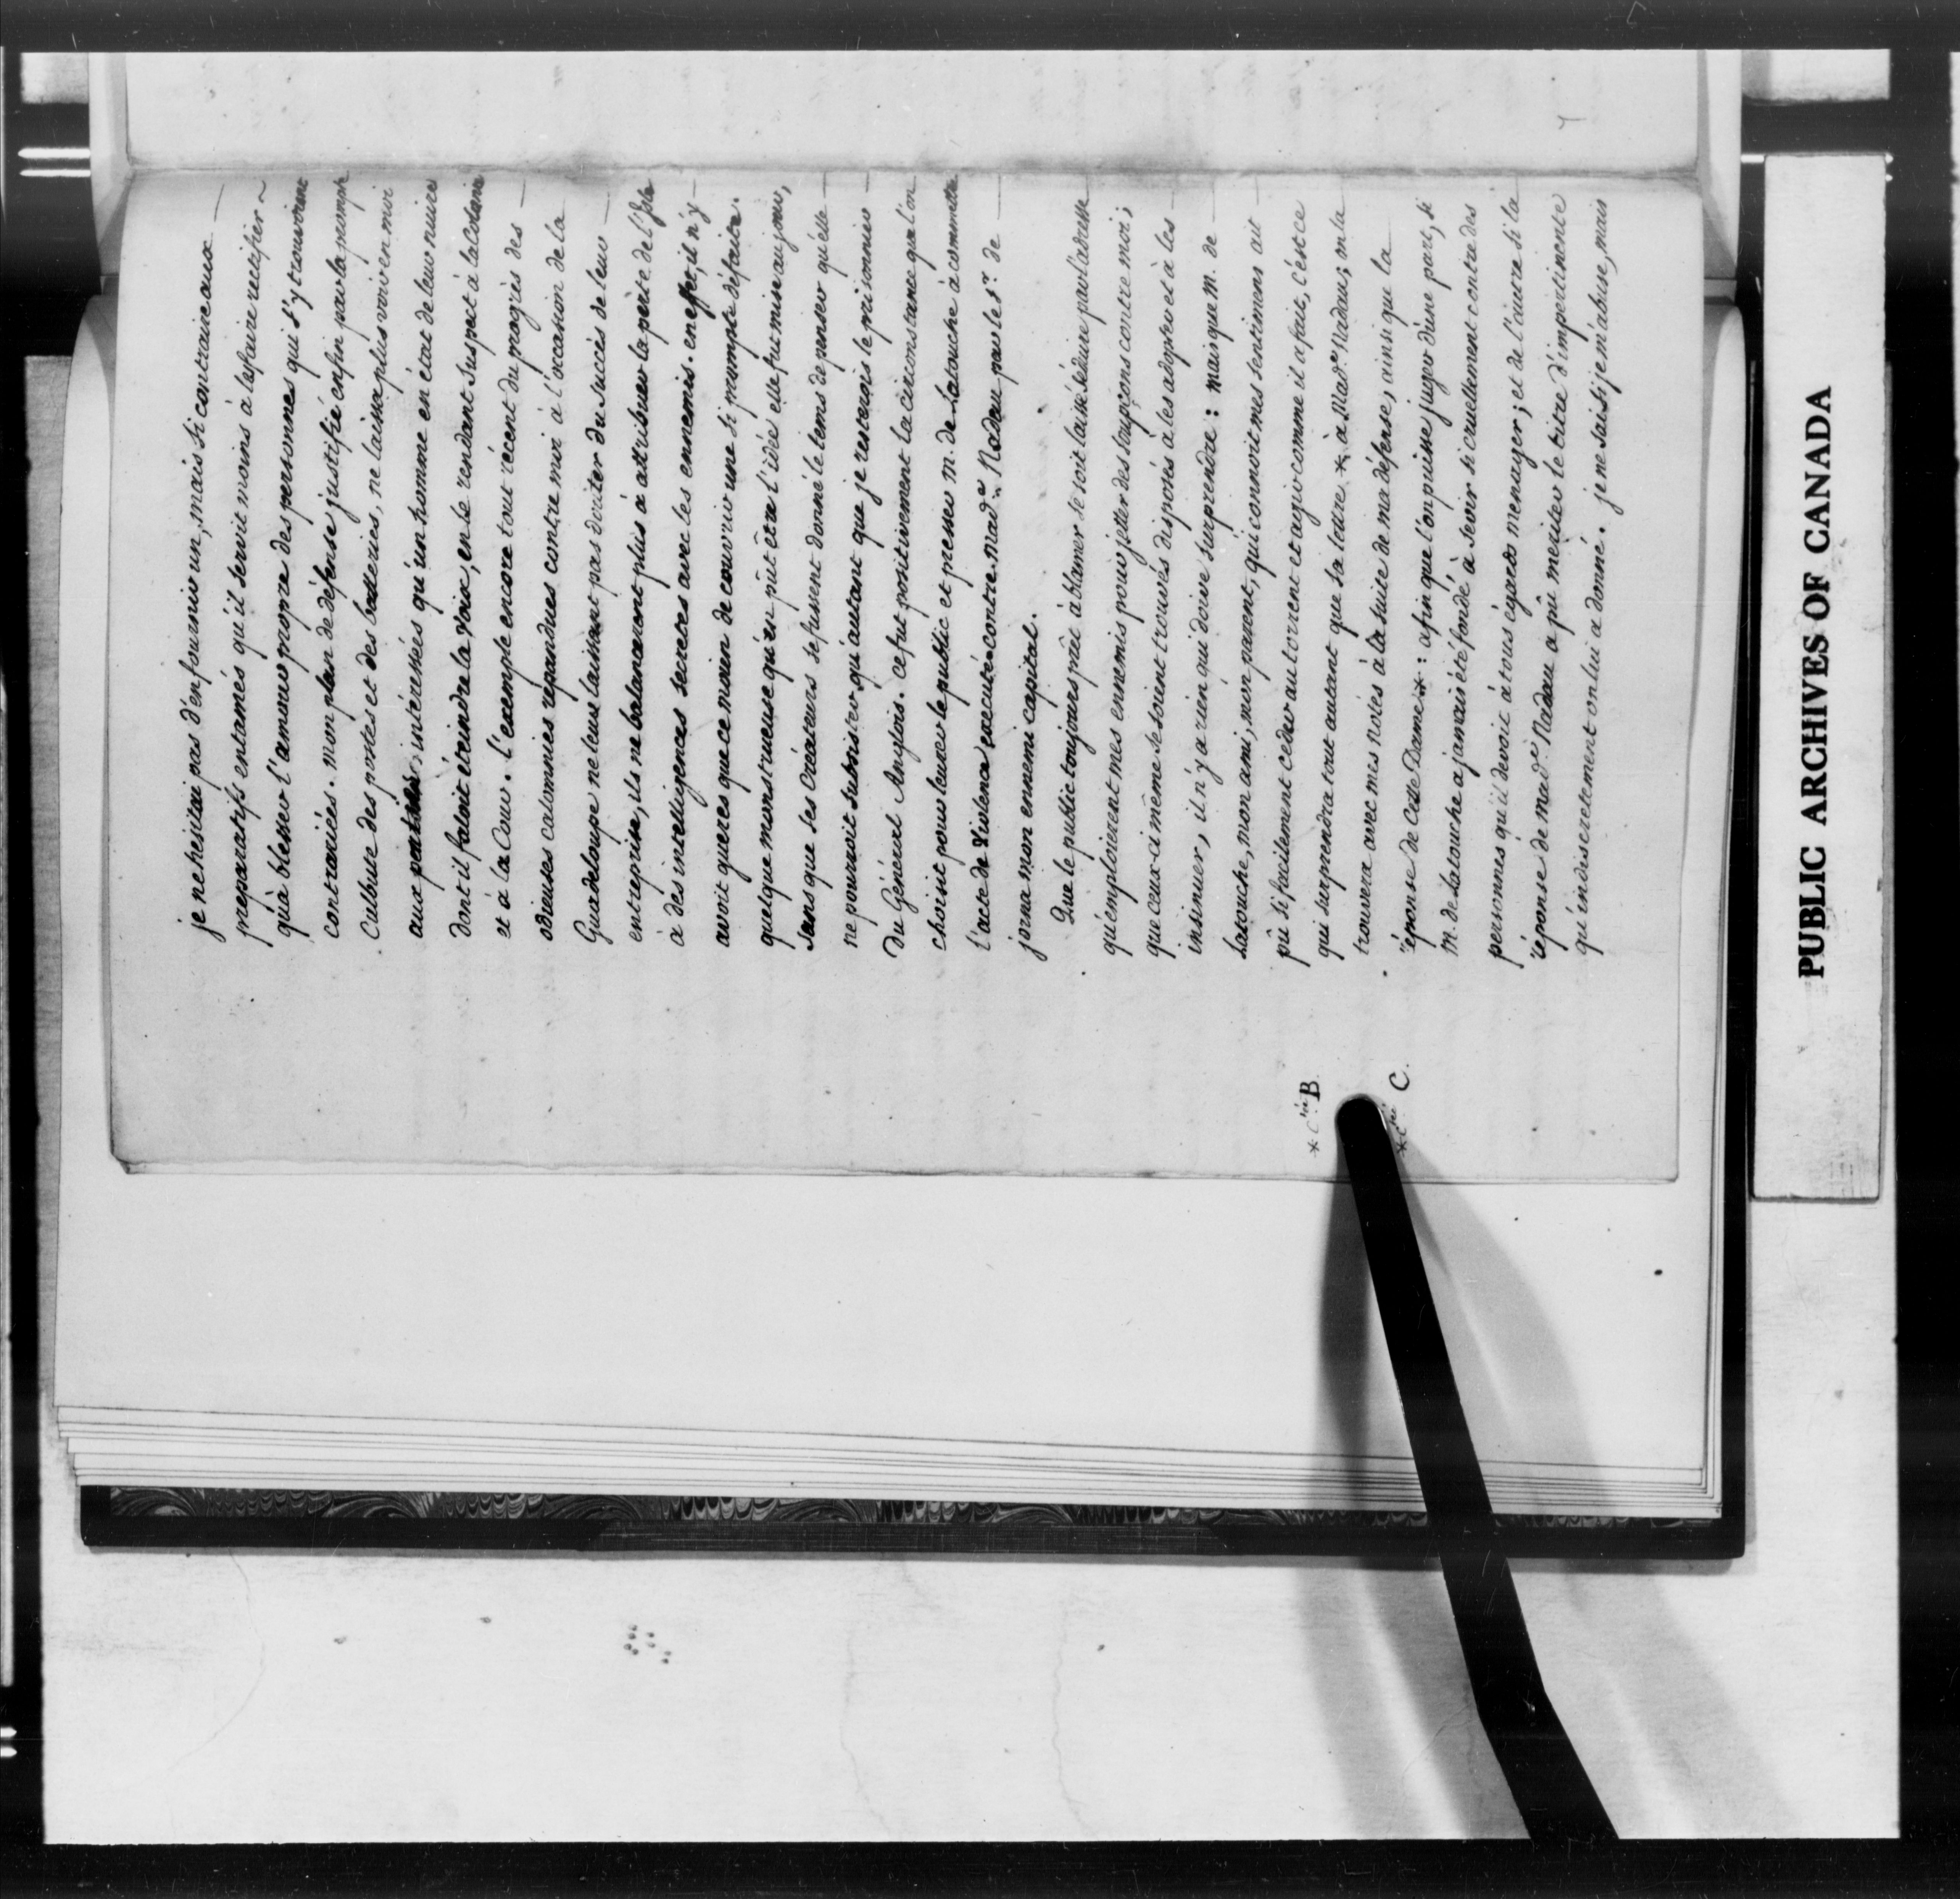 je ne hesitai pas d'en fournir un, mais si contraire aux
preparatifs entamés qu'il servit moins à les faire rectifier
qu'à blesser l'amour propre des personnes qui s'y trouvoient
contrariées. mon plan de défense justifié enfin par la prompte
Culbute des postes et des batteries, ne laissa plus voir en moi
aux intéressées qu'un homme en état de leur nuire
dont il faloit éteindre la Voix, en le rendant suspect à la Colonie
et à la Cour. l'exemple encore tout récent du progrès des
odieuses calomnies répandues contre moi à l'occasion de la
Guadeloupe ne leur laissant pas douter du succès de leur
entreprise, ils ne balancerent plus à attribuer la perte de l'Isle
à des intelligences secretes avec les ennemis. en effet, il n'y
avoit gueres que ce moien de couvrir une si prompte défaite.
quelque monstrueuse qu'en pût être l'idée elle fut mise au jour,
sans que ses Créateurs se fussent donné le tems de penser qu'elle
ne pourroit subsister qu'autant que je resterois le prisonnier
du Général Anglois. ce fut positivement la circonstance que l'on
choisit pour leurer le public et presser M. de Latouche à commettre
l'acte de Violence executé contre Mad.e Nadau par le S.r de
jorna mon ennemi capital.
Que le public toujours prêt à blamer se soit laissé séduire par l'adresse
qu'emploierent mes ennemis pour jetter des soupçons contre moi;
que ceux-ci même se soient trouvés disposés à les adopter et à les
insinuer, il n'y a rien qui doive surprendre: mais que M. de
Latouche, mon ami, mon parent, qui connoit mes sentimens ait
pû si facilement ceder au torrent et agir comme il a fait, c'est ce
qui surprendra tout autant que sa lettre * à Mad.e Nadau; on la
trouvera avec mes notes à la suite de ma défense, ainsi que la
réponse de Cette Dame *: afin que l'on puisse juger d'une part, si
M. de Latouche a jamais été fondé à sevir si cruellement contre des
personnes qu'il devoit à tous égards menager; et de l'autre si la
réponse de Mad.e Nadau a pû meriter le titre d'impertinente
qu'indiscretement on lui a donné. je ne sais si je m'abuse, mais
* B
* C.
PUBLIC ARCHIVES OF CANADA